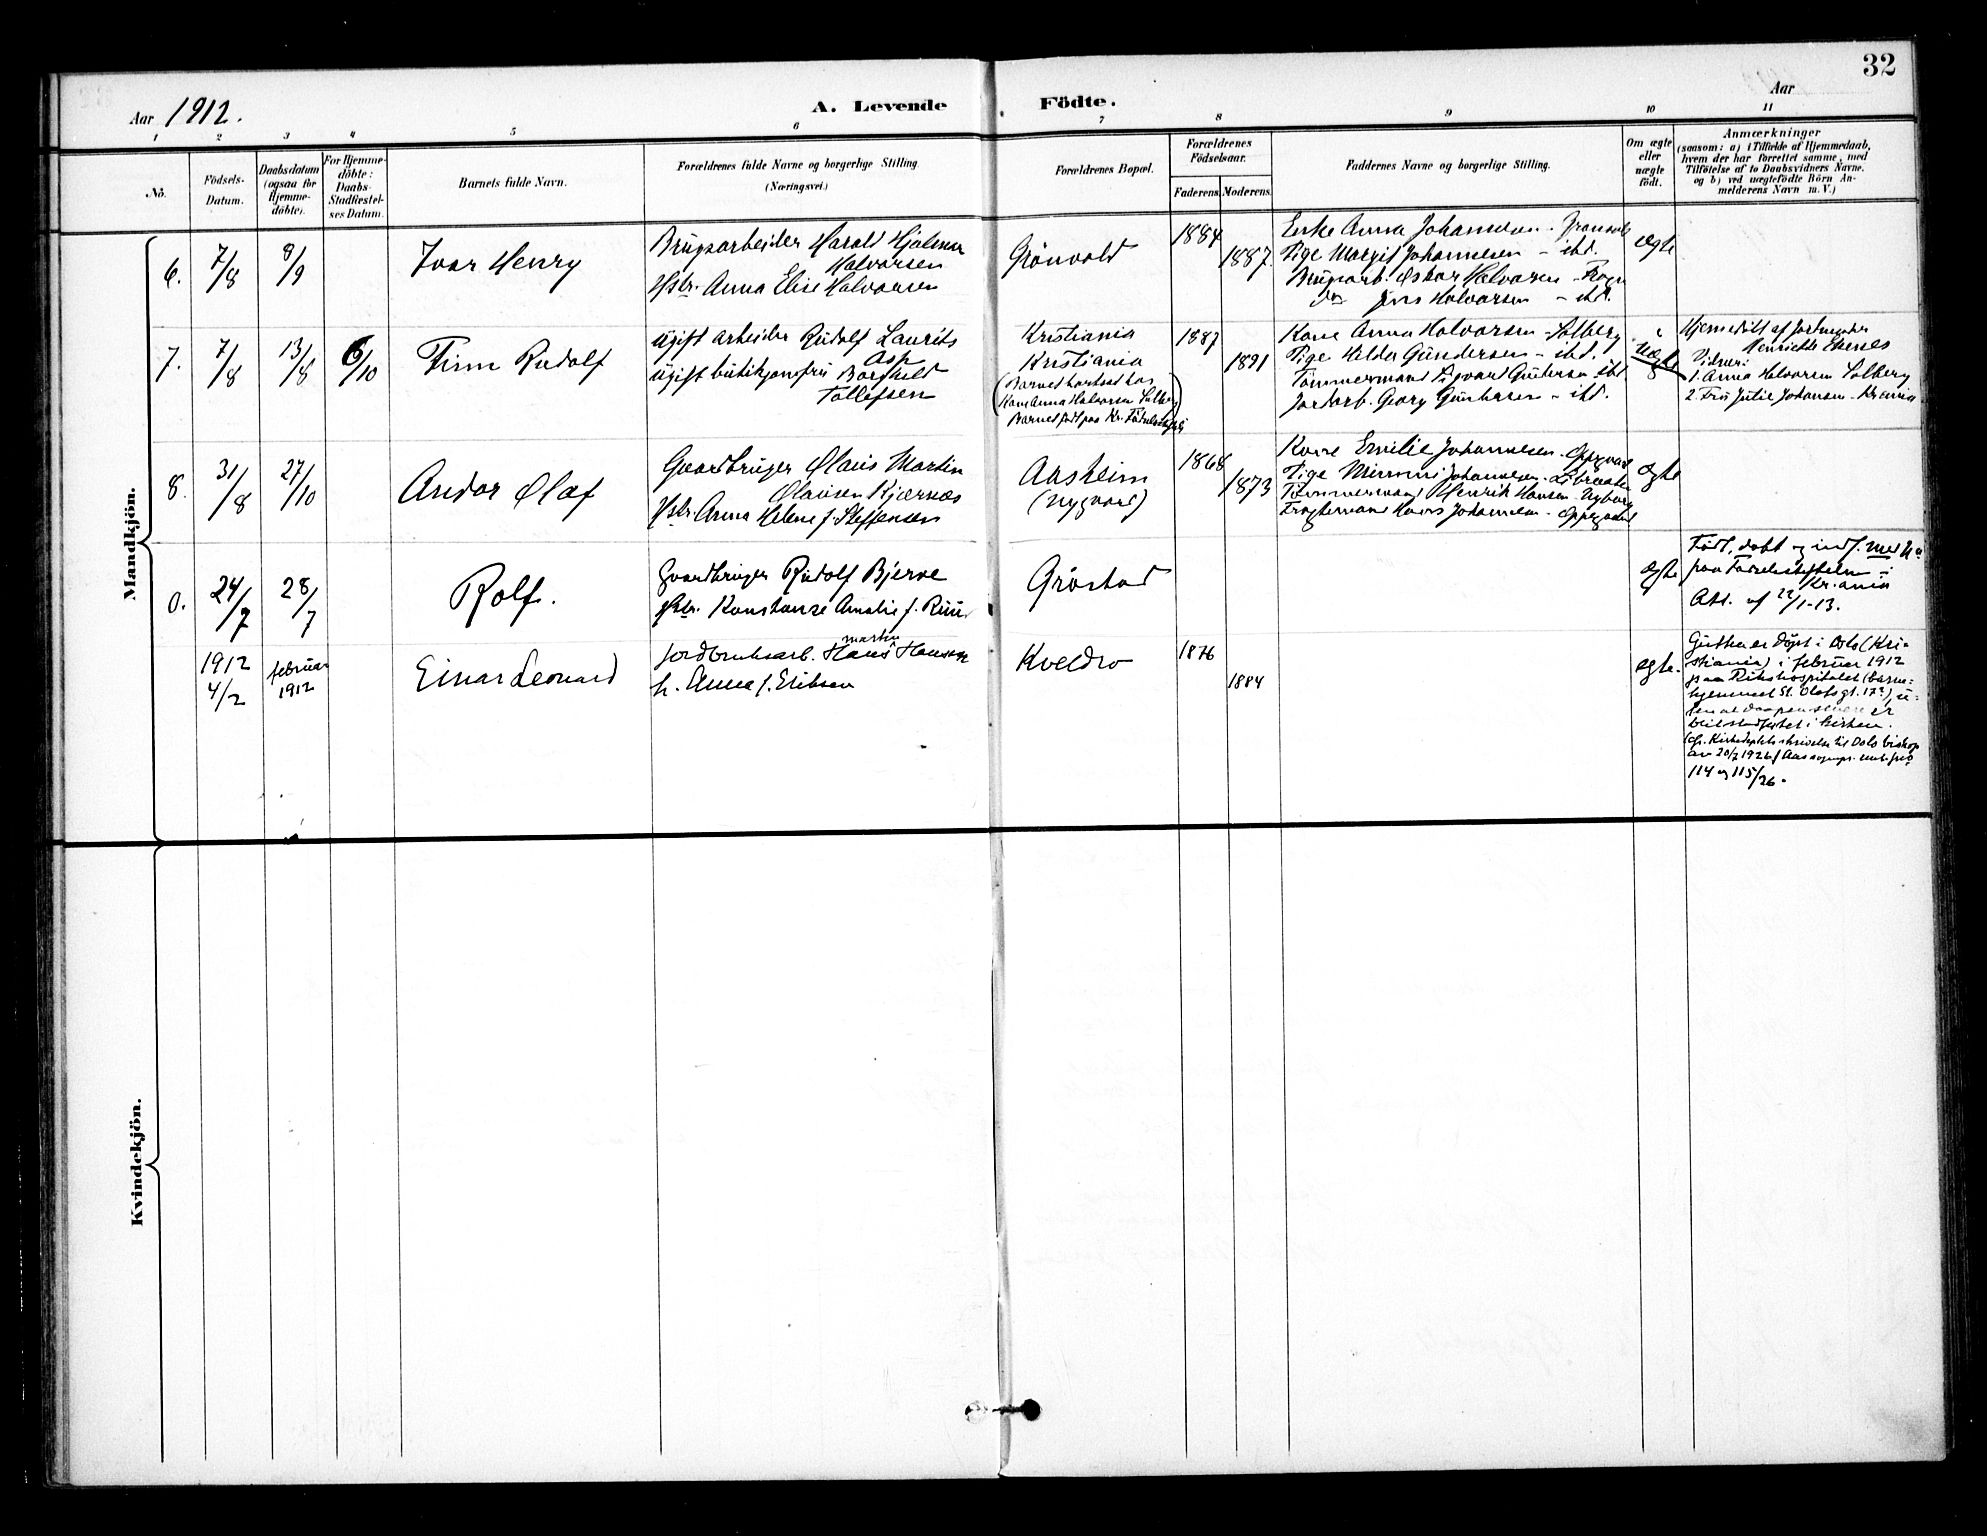 32
Aar 1912.
A. Levende Födte.
Aar
1 2 3 4 5 6 7 8 9 10 11
No.
Födsels-
Datum.
Daabsdatum
(ogsaa for
Hjemme-
döbte).
For Hjemme-
döbte:
Daabs-
Stadfæstel-
ses Datum.
Barnets fulde Navn.
Forældrenes fulde Navne og borgerlige Stilling.
(Næringsvei.)
Forældrenes Bopæl.
Forældrenes
Födselsaar.
Faderens. Moderens.
Faddernes Navne og borgerlige Stilling.
Om ægte
eller
uægte
födt.
Anmærkninger
(saasom: a) i Tilfælde af Hjemmedaab,
hvem der har forrettet samme, med
Tilföielse af to Daabsvidners Navne,
og b) ved uægtefödte Börn An-
melderens Navn m. V.)
Mandkjön.
6.
7/8
8/9
Ivar Henry
Brugsarbeider Harald Hjalmar
Halvorsen
Hstr. Anna Elise Halvorsen
Grönvold
1884
1887.
Enke Anna Johannesen -
Pige Margit Johannesen - ibd.
Brugsarb. Oskar Halvorsen -
Jens Halvorsen - ibd.
ægte
7.
7/8
13/8
6/10
Finn Rudolf
ugift arbeider Rudolf Laurits
Asp
ugift butikjomfru Borghild
Tollefsen
Kristiania
Kristiania
(Barnet bortsat hos
Kone Anna Halvorsen Solberg)
Barnet født paa Kr. Fødselsstiftelse
1887
1891
Kone Anna Halvorsen - Solberg
Pige Helda Gundersen - ibd.
Tömmermand Sigvart Gundersen ibd
Jordarb. Georg Gundersen - ibd.
uægte
Hjemmedöbt af Jordmoder
Henriette Ekenes
Vidner:
1. Anna Halvorsen Solberg
2. Fru Julie Johansen - Kr.ania
8.
31/8
27/10
Andor Olaf
Gaardbruger Olaus Martin
Olausen Kjærnes
Hstr. Anna Helene f. Steffensen
Aasheim
(Nygaard)
1868
1873
Kone Emilie Johannesen - Oppegaard
Pige Mimmi Johannesen -
Tömmermand Henrik Hansen - Nyborg
Fragtemand Hans Johannesen - Oppegaard
ægte
0.
24/7
28/7
Rolf.
Gaardbruger Rudolf Bjerve
Hstr. Konstanse Amalie f. Ruu
Gröstad
ægte
Födt, döbt og indf. med No
paa Födselsstiftelsen i
Kr.ania
Att. af 22/1-13.
1912
4/2
februar
1912
Einar Leonard
Jordbruksarb. Hans Martin Hansen
h. Anna f. Eriksen
Kveldro
1876
1884
ægte.
Gutten er døpt i Oslo (Kri-
stiania) i februar 1912
paa Rikshospitalet (barne-
hjemmet St. Olafs gt. 17?), u-
ten at daapen senere er
blit stadfæstet i kirken.
(cfr. Kirkedeptets skrivelse til Oslo biskop
av 20/2 1926 / Aas sognepr. emb. jno
114 og 115/26.
Kvindekjön.